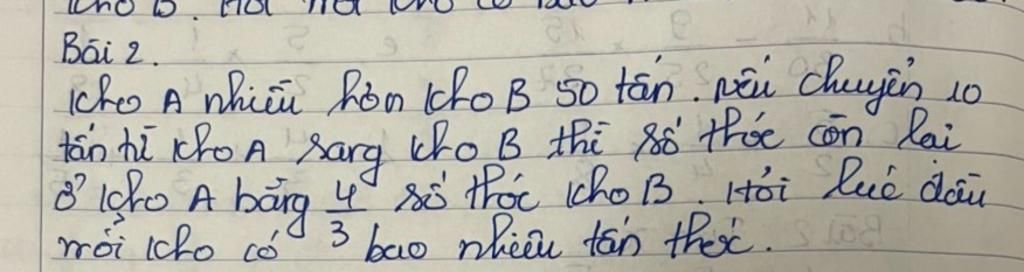 kho B. Hỏi mỗi kho có bao
Bài 2.
Kho A nhiều hơn kho B 50 tấn. Nếu chuyển 10
tấn từ kho A sang kho B thì số thóc còn lại
ở kho A bằng 4/3 số thóc kho B. Hỏi lúc đầu
mỗi kho có bao nhiêu tấn thóc.